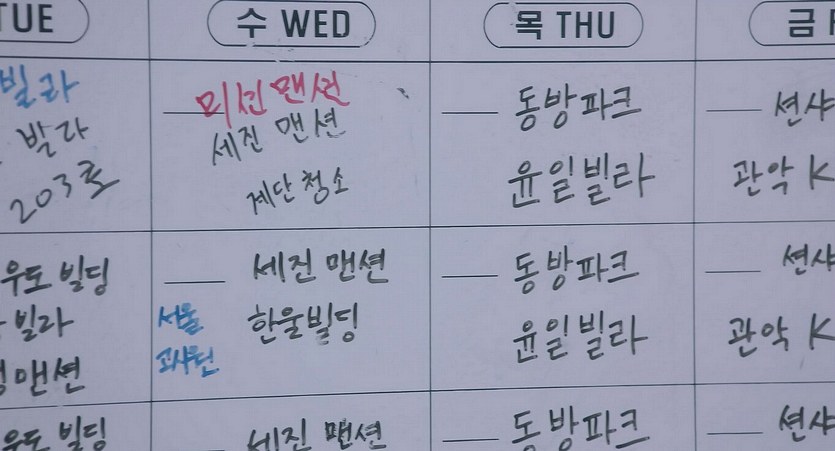 TUE 수 WED 목 THU 금 F
빌라 미진맨션 동방파크 션샤
빌라 세진 맨션 윤일빌라 관악 K
203호 계단청소
우도 빌딩 세진 맨션 동방파크 션샤
빌라 서울 한울빌딩 윤일빌라 관악 K
맨션
우도 빌딩 세진 맨션 동방파크 션샤